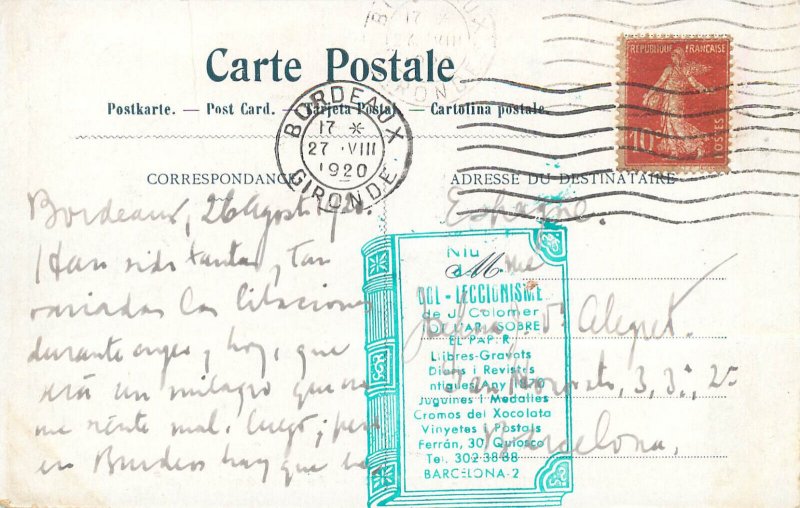 Carte Postale
Postkarte. — Post Card. — Tarjeta Postal. — Cartolina postale.
CORRESPONDANCE
ADRESSE DU DESTINATAIRE
BORDEAUX
17 *
27 VIII
1920
GIRONDE
REPUBLIQUE FRANÇAISE
10
POSTES
Bordeaux, 26 Agost 1920.
Han sido tantas, tan
variadas las
durante ayer y hoy, que
será un milagro que no
me siente mal. Luego, pero
en Burdeos hay que
Espagne.
Alegret.
3, 3º, 2ª
Barcelona,
Niu
COL·LECCIONISME
de J. Colomer
TOT L'ART SOBRE
EL PAPER
Llibres-Gravats
Diaris i Revistes
antigues Any 1870
Juguines i Medalles
Cromos del Xocolata
Vinyetes i Postals
Ferrán, 30, Quiosco
Tel. 302 38 88
BARCELONA-2